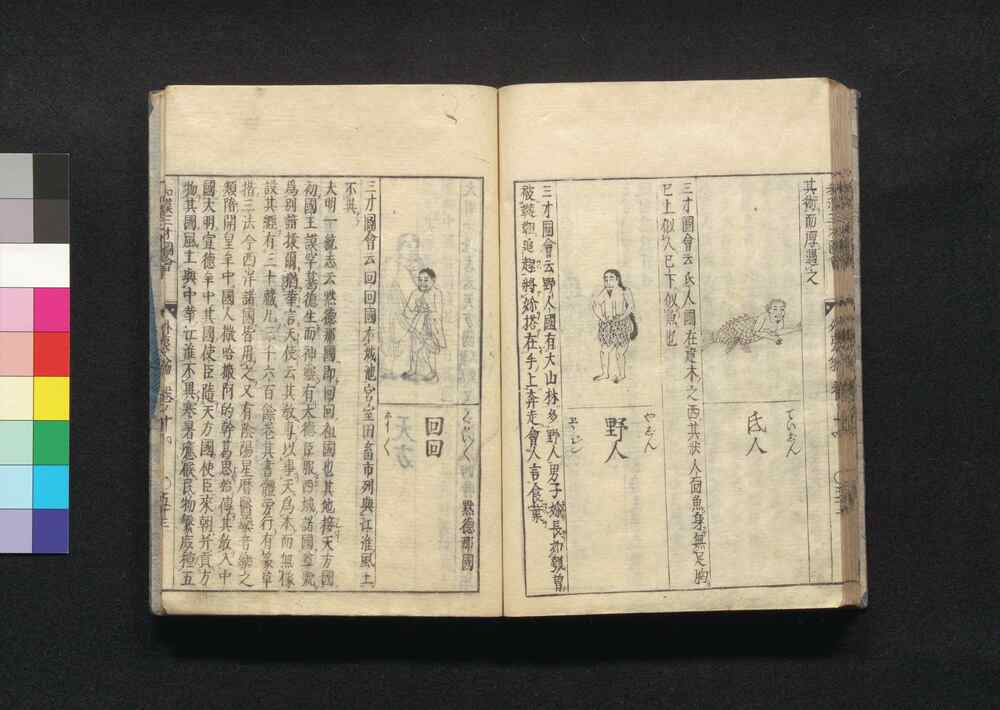 其術而厚遇之
ていじん
氐人
三才圖會云氐人國在建木之西其狀人面魚身無足胸
已上似人已下似魚也
やじん
野人
三才圖會云野人國有大山林多野人男子
被髮 追趕將 搭在手上奔走會人言食葉
回回
默德那國
三才圖會云回回國有城池宮室田畜市列與江淮風土
不異
大明一統志云默德那國即回回祖國也其地接天方國
初國王謨罕驀德生而神靈有大德臣服西域諸國尊號
爲別諳援爾猶華言天使云其教專以事天爲本而無像
設其經有三十藏凡三千六百餘卷其書體旁行有篆草
楷三法今西洋諸國皆用之又有陰陽星曆醫藥音樂之
類隋開皇年中國人撒哈撒阿的幹葛思始傳其教入中
國大明宣德年中其國使臣隨天方國使臣來朝并貢方
物其國風土與中華江淮不異寒暑應候民物繁庶種五
和漢三才圖會